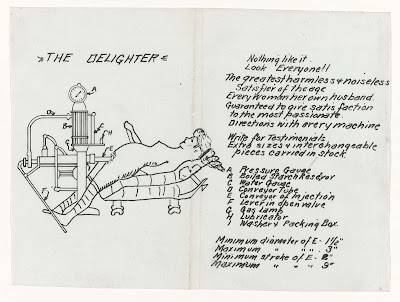 "THE DELIGHTER"
A
D
B
C
F
H
G
E
F
I
Nothing like it
Look Everyone!!
The greatest harmless & noiseless
Satisfier of the age
Every Woman her own husband.
Guaranteed to give satisfaction
to the most passionate.
Directions with every machine
Write for Testimonials
Extra sizes & interchangeable
pieces carried in stock.
A Pressure Gauge
B Boiled Starch Reservoir
C Water Gauge
D Conveyor Tube
E Conveyor of Injection
F Lever in open valve
G Gas Lamp
H Lubricator
I Washer & Packing Box.
Minimum diameter of E - 1½"
Maximum " " " - 3"
Minimum stroke of E - 2"
Maximum " " " 9"